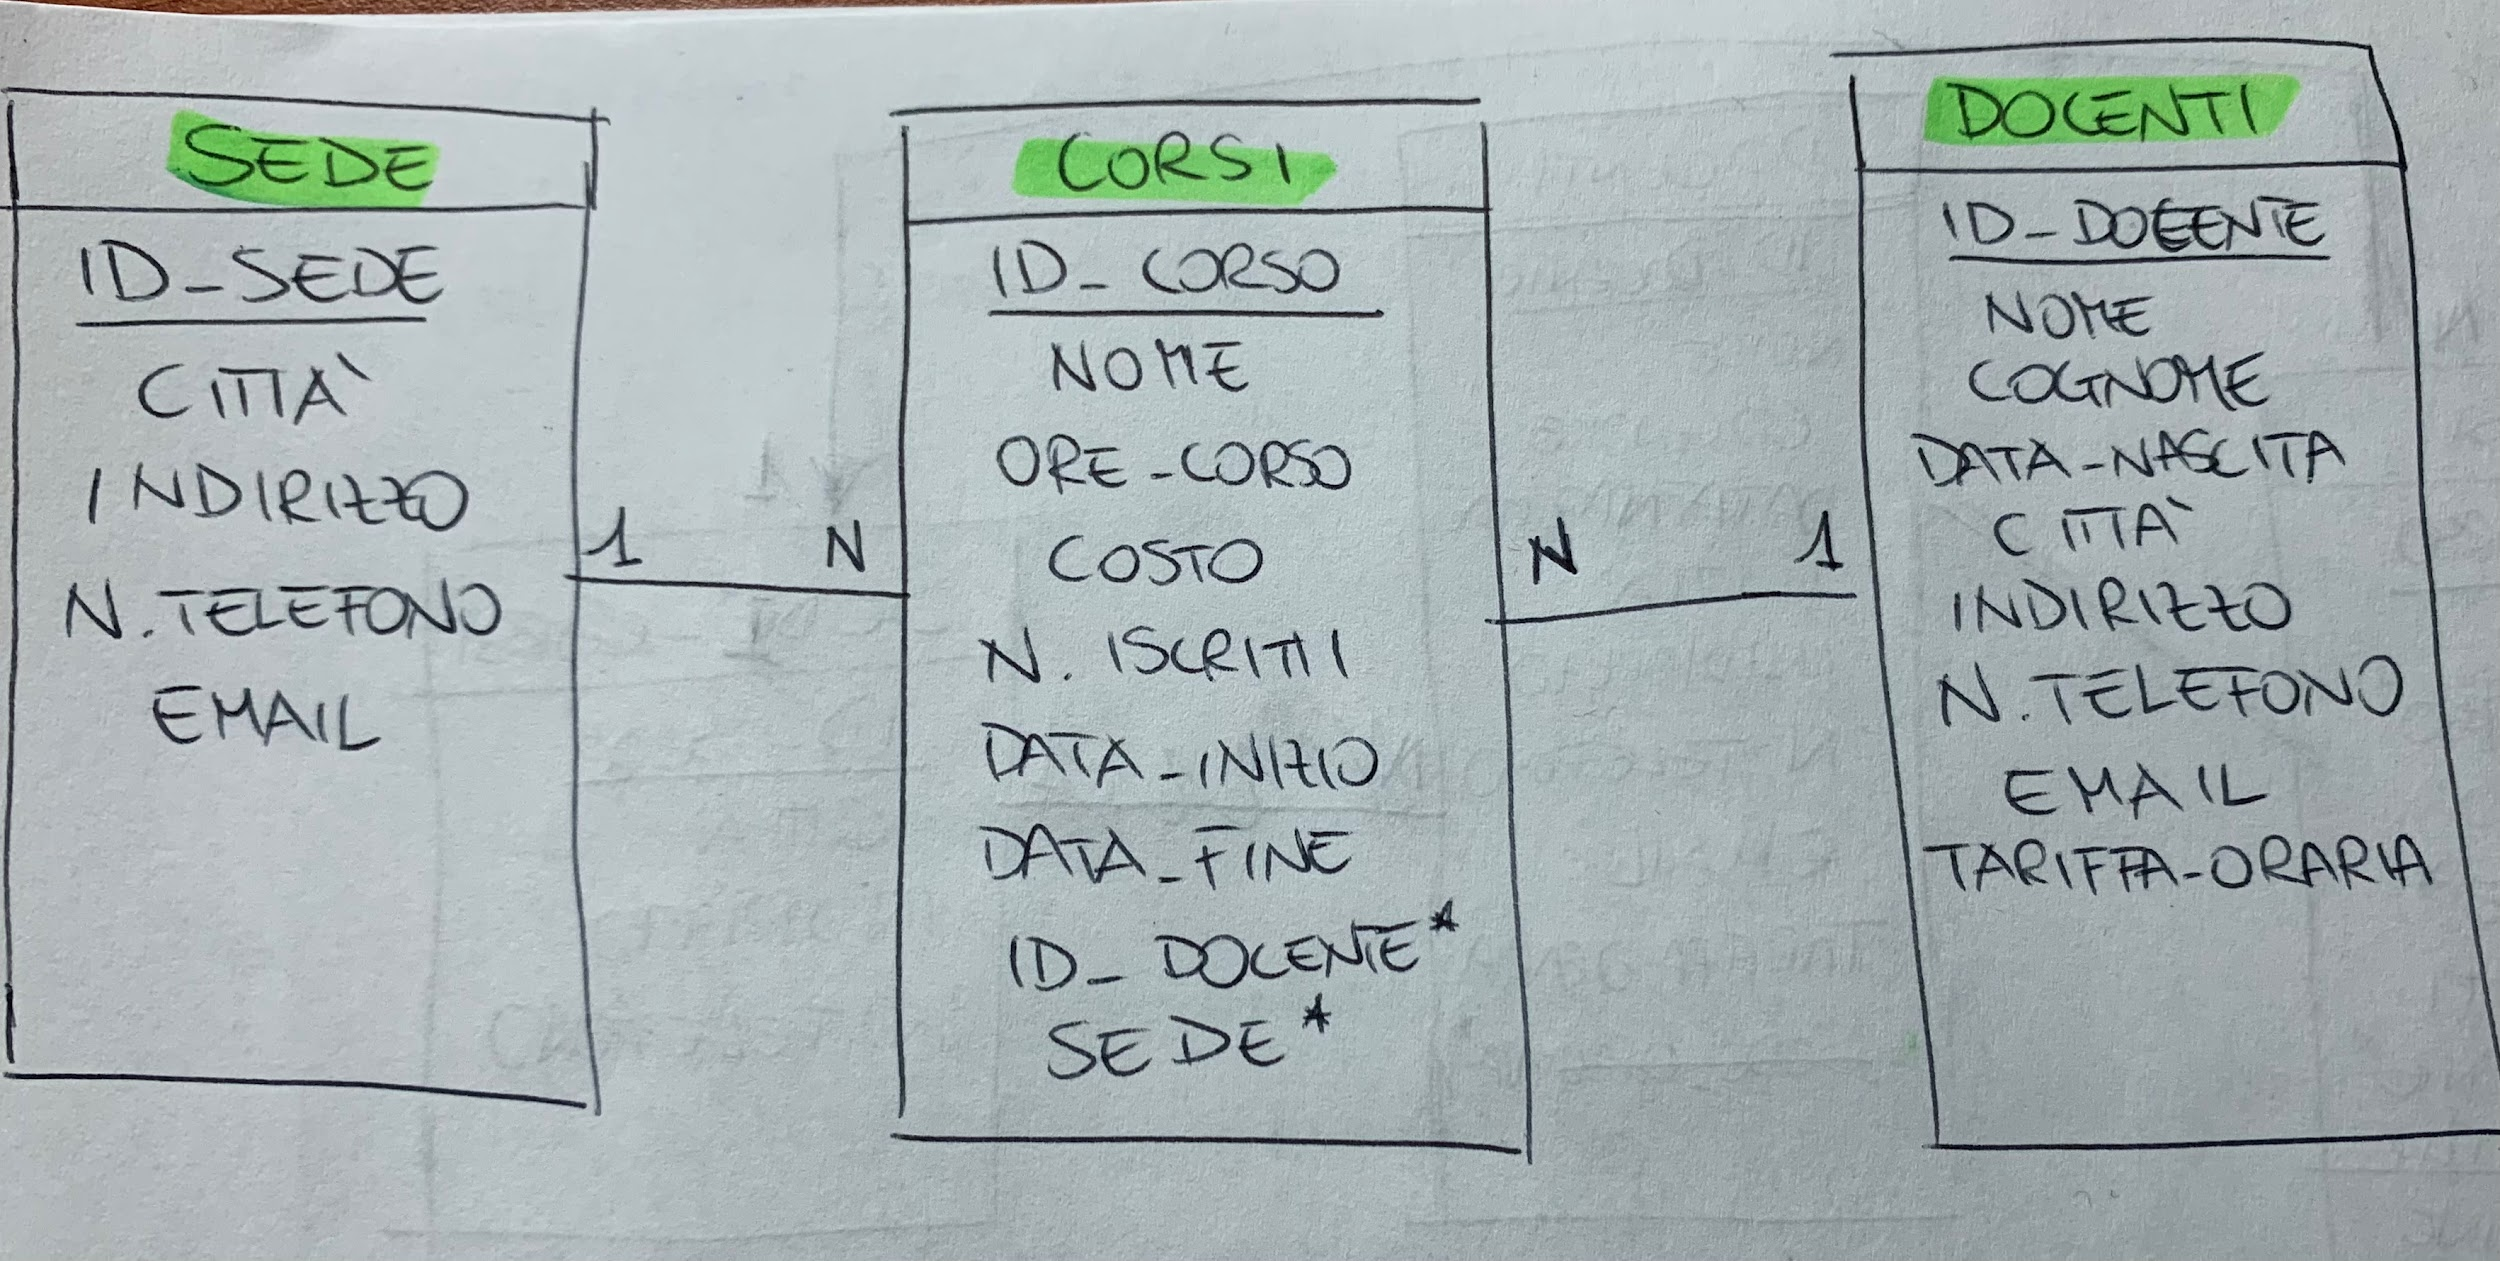 SEDE
ID_SEDE
CITTÀ
INDIRIZZO
N. TELEFONO
EMAIL
1
N
CORSI
ID_CORSO
NOME
ORE_CORSO
COSTO
N. ISCRITTI
DATA_INIZIO
DATA_FINE
ID_DOCENTE*
SEDE*
N
1
DOCENTI
ID_DOCENTE
NOME
COGNOME
DATA_NASCITA
CITTÀ
INDIRIZZO
N. TELEFONO
EMAIL
TARIFFA_ORARIA